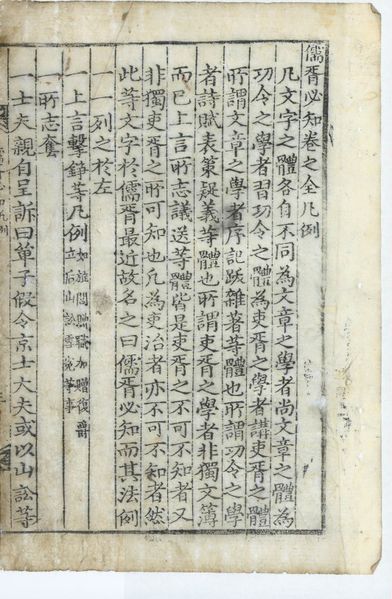 儒胥必知卷之全凡例
凡文字之體各自不同為文章之學者尚文章之體為
功令之學者習功令之體為吏胥之學者講吏胥之體
所謂文章之學者序記跋雜著等體也所謂功令之學
者詩賦表策疑義等體也所謂吏胥之學者非獨文簿
而已上言所志議送等體皆是吏胥之不可不知者又
非獨吏胥之所可知也凡為吏治者亦不可不知者然
此等文字於儒胥最近故名之曰儒胥必知而其法例
一一列之於左
一上言擊錚等凡例 如旌閭贈職加贈復爵
立后山訟雪冤等事
一所志套
一士夫親自呈訴曰單子假令京士大夫或以山訟等